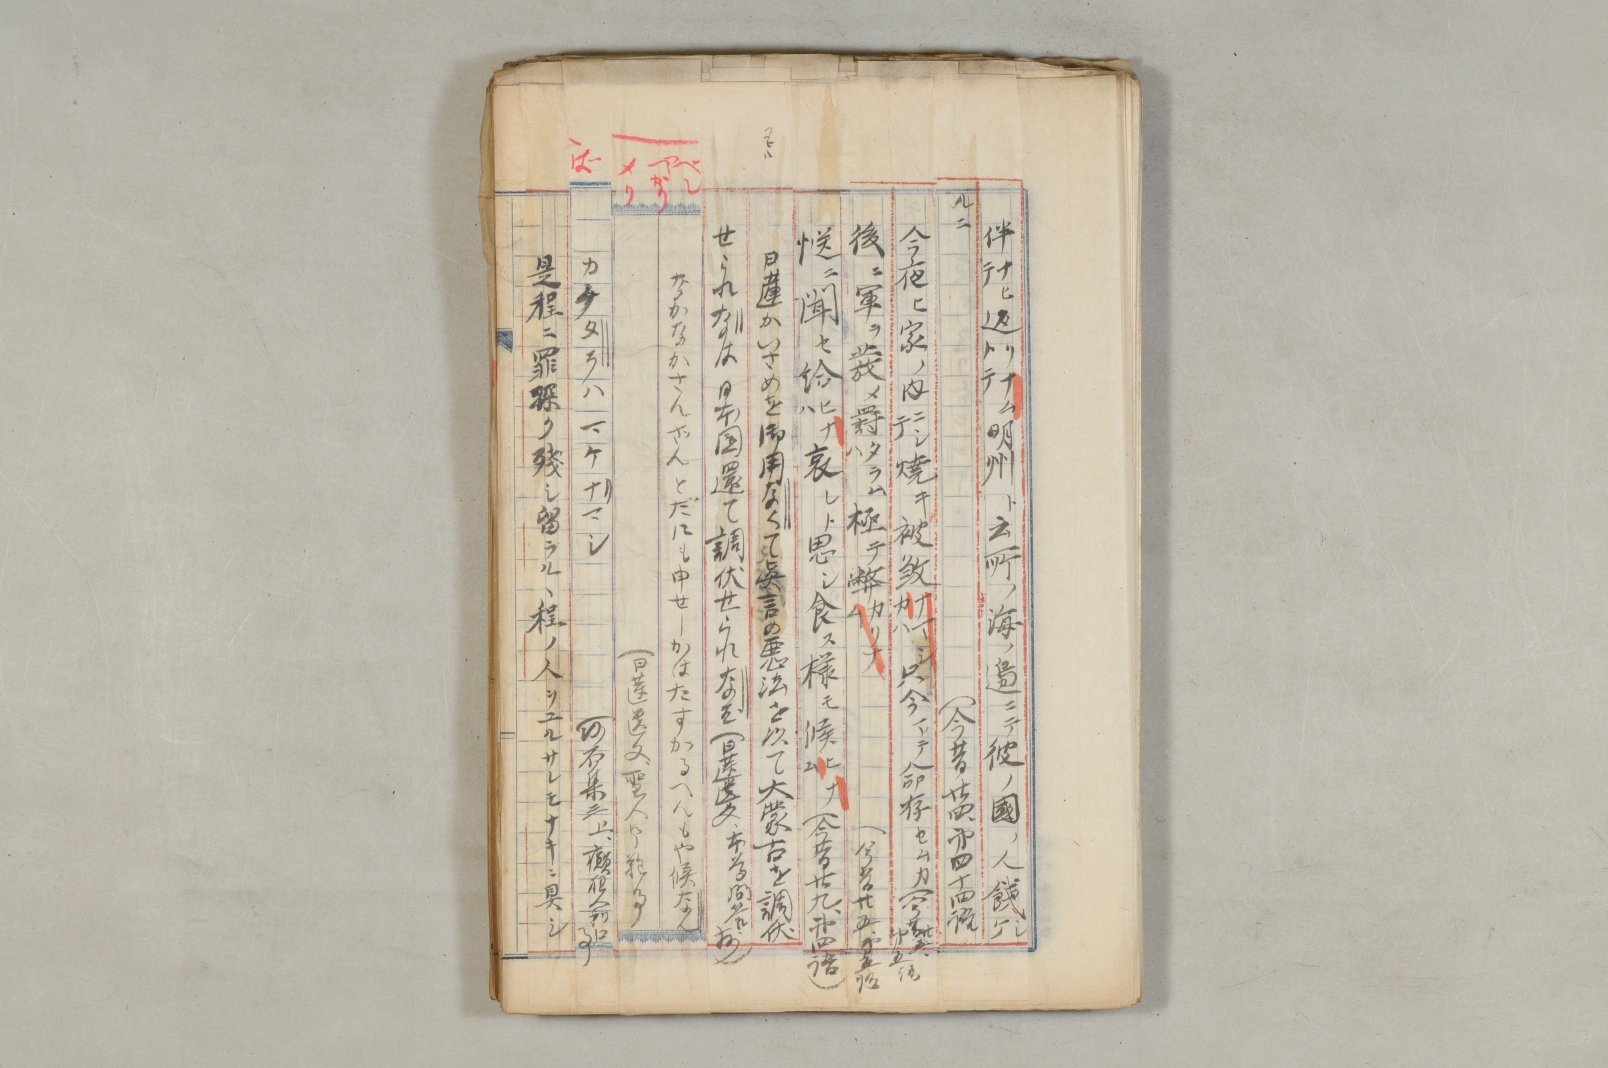 伴ナヒ返リナムトテ明州ト云所ノ海ノ邊ニテ彼ノ國ノ人餞ケシ
ルニ (今昔廿四、第四十四話
今夜ヒ家ノ内ニシテ焼キ被敛ナマシカハ只今マテ命存セムカ (今昔廿五、第五話
後ニ軍ヲ發メ罸ハタラム極テ弊カリナム (今昔廿五、第五話
悏ニ聞セ給ヒナハ哀レト思シ食ス様モ候ヒナム (今昔廿九、第四話)
日蓮かいさめを御用なくて真言の悪法を以て大蒙古を調伏
せられなは日本国還て調伏せられなむ (日蓮遺文、本尊問答抄)
なかなかさんざんとだにも申せしかはたすかるへんもや候なん
(日蓮遺文、聖人御難事
カタタラハマケナマシ (沙石集三上、癲狂人利口事
是程ニ罪深ク残シ留ラルヽ程ノ人ツユルサレモナキニ具シ
べし
つべかり
メリ
ば